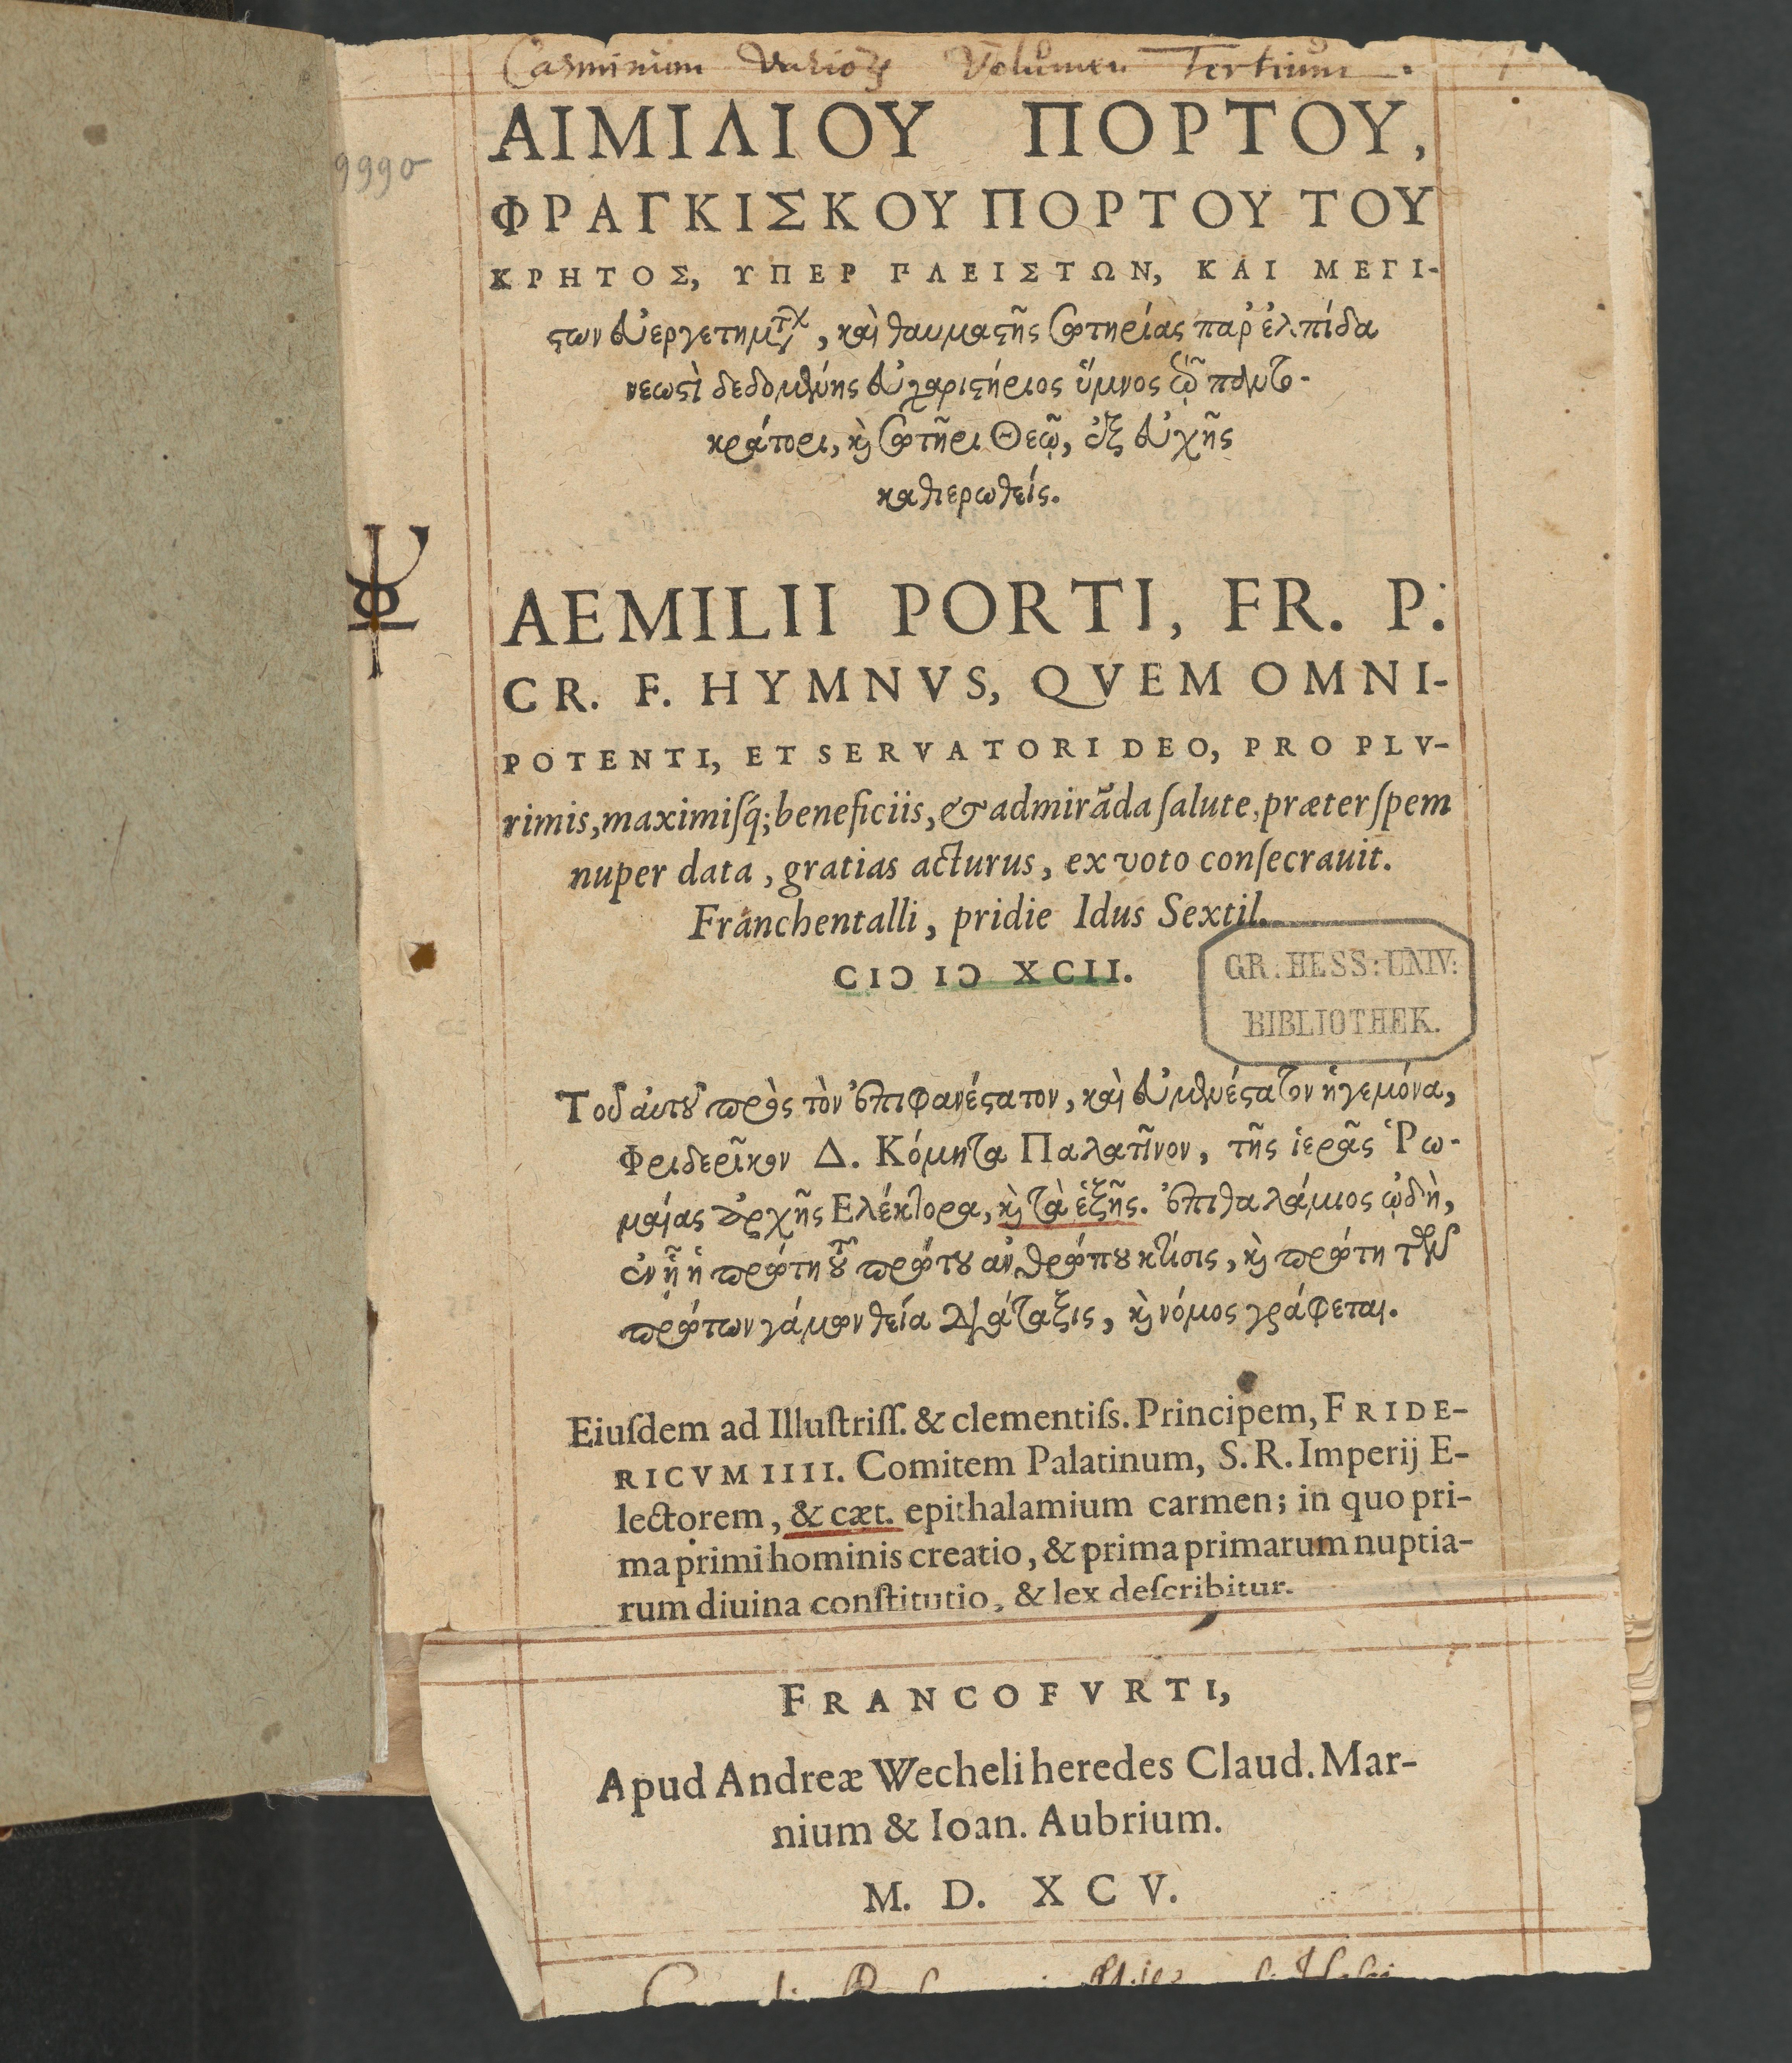 Carminum Varioꝝ Volumen Tertium.
ΑΙΜΙΛΙΟΥ ΠΟΡΤΟΥ,
9990
ΦΡΑΓΚΙΣΚΟΥ ΠΟΡΤΟΥ ΤΟΥ
ΚΡΗΤΟΣ, ΥΠΕΡ ΠΛΕΙΣΤΩΝ, ΚΑΙ ΜΕΓΙ-
ϛων εὐεργετημάτων, καὶ θαυμαϛῆς σωτηρίας παρ' ἐλπίδα
νεωϛὶ δεδομένης εὐχαριϛήριος ὕμνος τῷ παντο-
κράτορι, ϗ σωτῆρι Θεῷ, ἐξ εὐχῆς
καθιερωθείς.
AEMILII PORTI, FR. P.
CR. F. HYMNVS, QVEM OMNI-
POTENTI, ET SERVATORI DEO, PRO PLV-
rimis, maximiſq́; beneficiis, & admirãda ſalute, præter ſpem
nuper data, gratias acturus, ex voto conſecrauit.
Franchentalli, pridie Idus Sextil.
CIↃ IↃ XCII.
GR. HESS: UNIV:
BIBLIOTHEK.
Τοῦ αὐτοῦ πρὸς τὸν ἐπιφανέϛατον, καὶ εὐμενέϛατον ἡγεμόνα,
Φριδερῖκον Δ. Κόμητα Παλατῖνον, τῆς ἱερᾶς Ῥω-
μαίας ἀρχῆς Ελέκτορα, ϗ τὰ ἑξῆς. ἐπιθαλάμιος ᾠδὴ,
ἐν ᾗ ἡ πρώτη τοῦ πρώτου ἀνθρώπου κτίσις, ϗ πρώτη τῶν
πρώτων γάμων θεία διάταξις, ϗ νόμος γράφεται.
Eiuſdem ad Illuſtriſſ. & clementiſs. Principem, FRIDE-
RICVM IIII. Comitem Palatinum, S. R. Imperij E-
lectorem, & cæt. epithalamium carmen; in quo pri-
ma primi hominis creatio, & prima primarum nuptia-
rum diuina conſtitutio, & lex deſcribitur.
FRANCOFVRTI,
Apud Andreæ Wecheli heredes Claud. Mar-
nium & Ioan. Aubrium.
M. D. XCV.